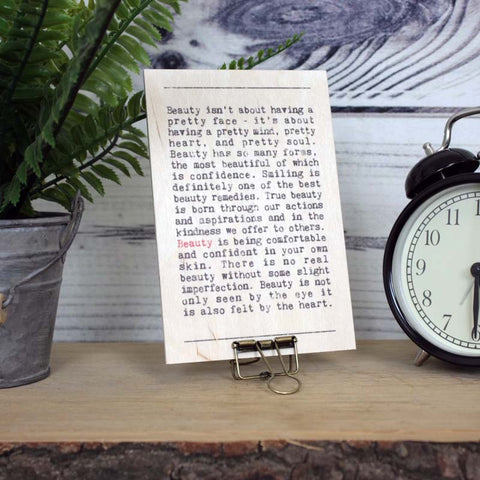 Beauty isn't about having a
pretty face - it's about
having a pretty mind, pretty
heart, and pretty soul.
Beauty has so many forms,
the most beautiful of which
is confidence. Smiling is
definitely one of the best
beauty remedies. True beauty
is born through our actions
and aspirations and in the
kindness we offer to others.
Beauty is being comfortable
and confident in your own
skin. There is no real
beauty without some slight
imperfection. Beauty is not
only seen by the eye it
is also felt by the heart.
11
10
9
8
7
6